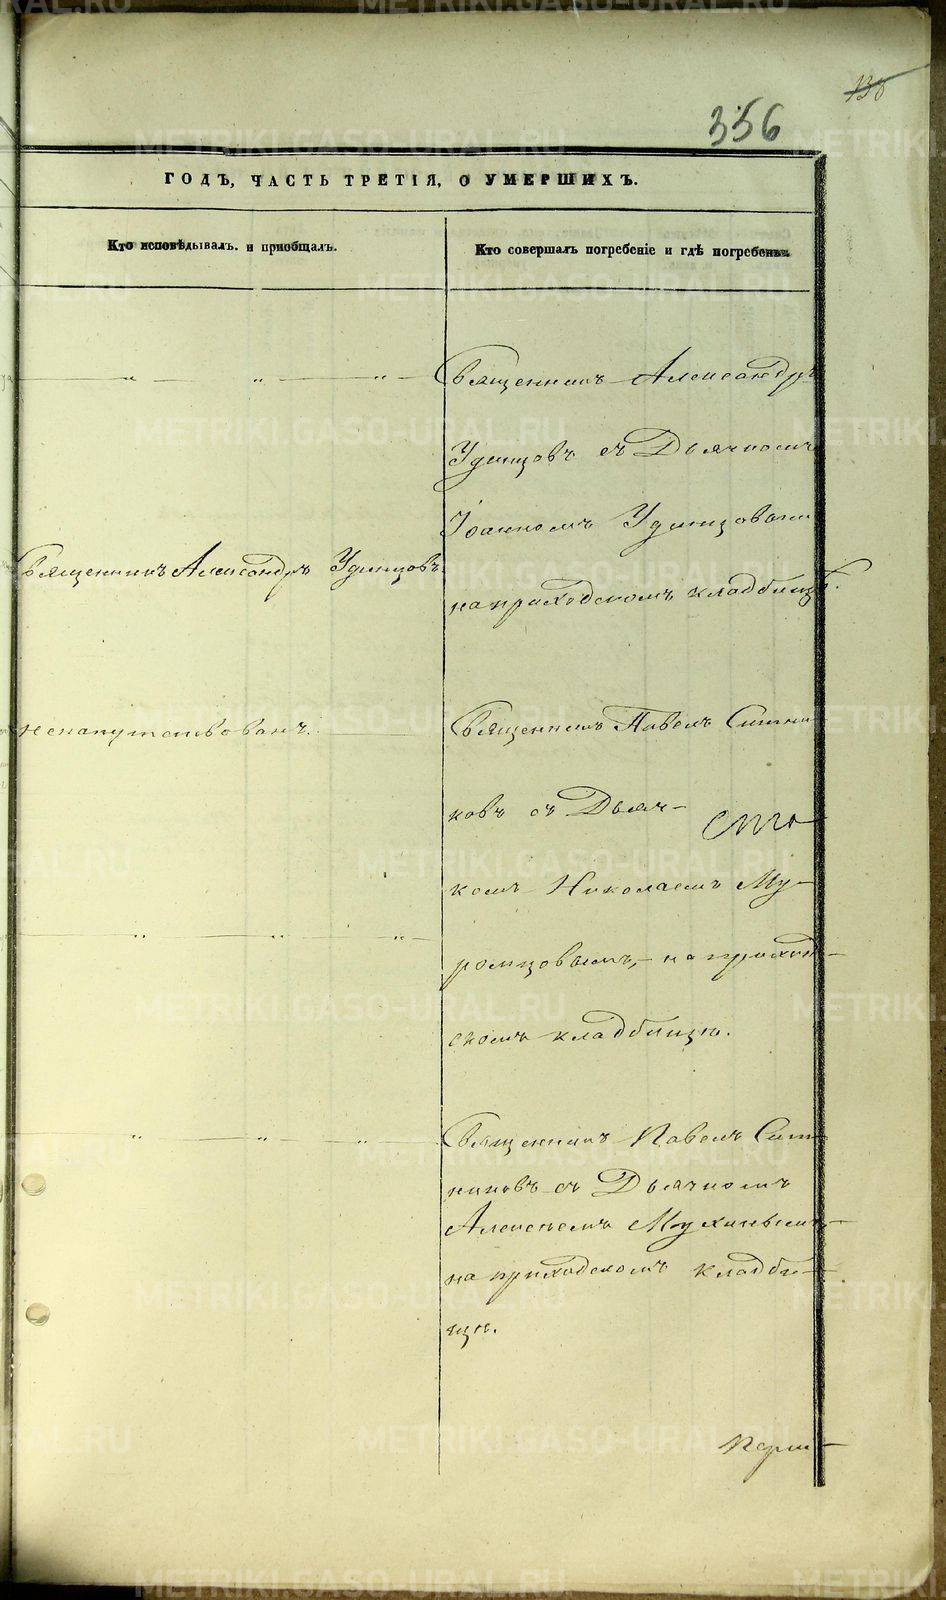 138
356
ГОДЪ, ЧАСТЬ ТРЕТІЯ, О УМЕРШИХЪ.
Кто исповѣдывалъ и пріобщалъ.
Кто совершалъ погребеніе и гдѣ погребены.
Священникъ Александръ
Удинцовъ съ Дьячкомъ
Іоанномъ Удинцовымъ
на приходскомъ кладбищѣ.
Священникъ Александръ Удинцовъ
ненапутствованъ.
Священникъ Павелъ Ситни
ковъ съ Дьяч-
комъ Николаемъ Му-
ромцовымъ, на приход-
скомъ кладбищѣ.
Священникъ Павелъ Сит
никовъ съ Дьячкомъ
Алексѣемъ Мухинымъ,
на приходскомъ кладби-
щѣ.
METRIKI.GASO-URAL.RU